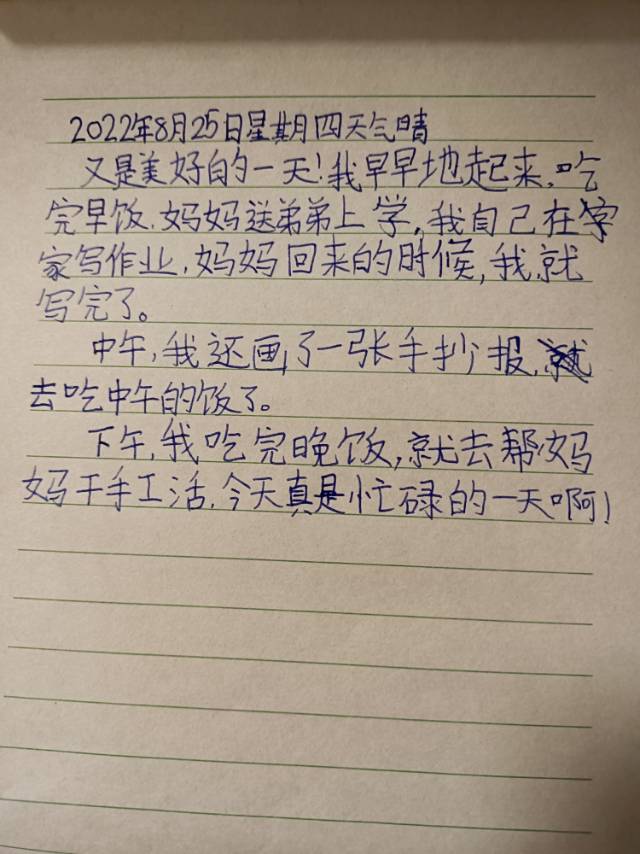 2022年8月25日星期四天气晴
又是美好的一天!我早早地起来,吃
完早饭,妈妈送弟弟上学,我自己在
家写作业,妈妈回来的时候,我就
写完了。
中午,我还画了一张手抄报,
去吃中午的饭了。
下午,我吃完晚饭,就去帮妈
妈干手工活,今天真是忙碌的一天啊!